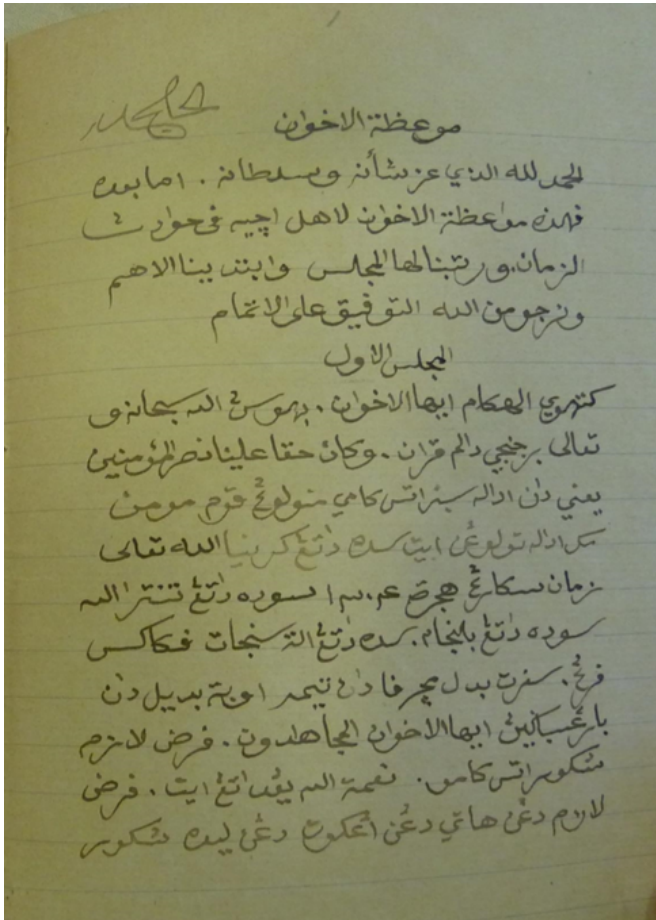 موعظة الاخوان
الحمد لله الذي عز شأنه وسلطانه . اما بعده
فهذه مواعظة الاخوان لاهل اچيه فى حوادث
الزمان. ورتبنا لها المجلس وابتدينا الاهم
ونرجو من الله التوفيق على الاتمام
المجلس الاول
كتهوي الهكام ايها الاخوان . بهوسڽ الله سبحانه و
تعالى برجنجي دالم قران . وكان حقا علينا نصر المؤمنين
يعني دان اداله سبنرڽ اتس كامي منولوڠ قوم مومن
مك اداله تولوڠن ايت سده داتڠ كرنيا الله تعالى
زمان سكارڠ هجرة سوده داتڠ تنترا الله
سوده داتڠ بلنجام. سده داتڠ الة سنجات فكاكس
فرڠ . سفرت بدل مچم ٢ دان اوبة بديل دان
بارڠ سباݢين ايها الاخوان المجاهدون . فرض لازم
شكور اتس كامو . نعمة الله يڠ داتڠ ايت . فرض
لازم دڠن هاتي دڠن اڠݢوت دڠن ليده شكور